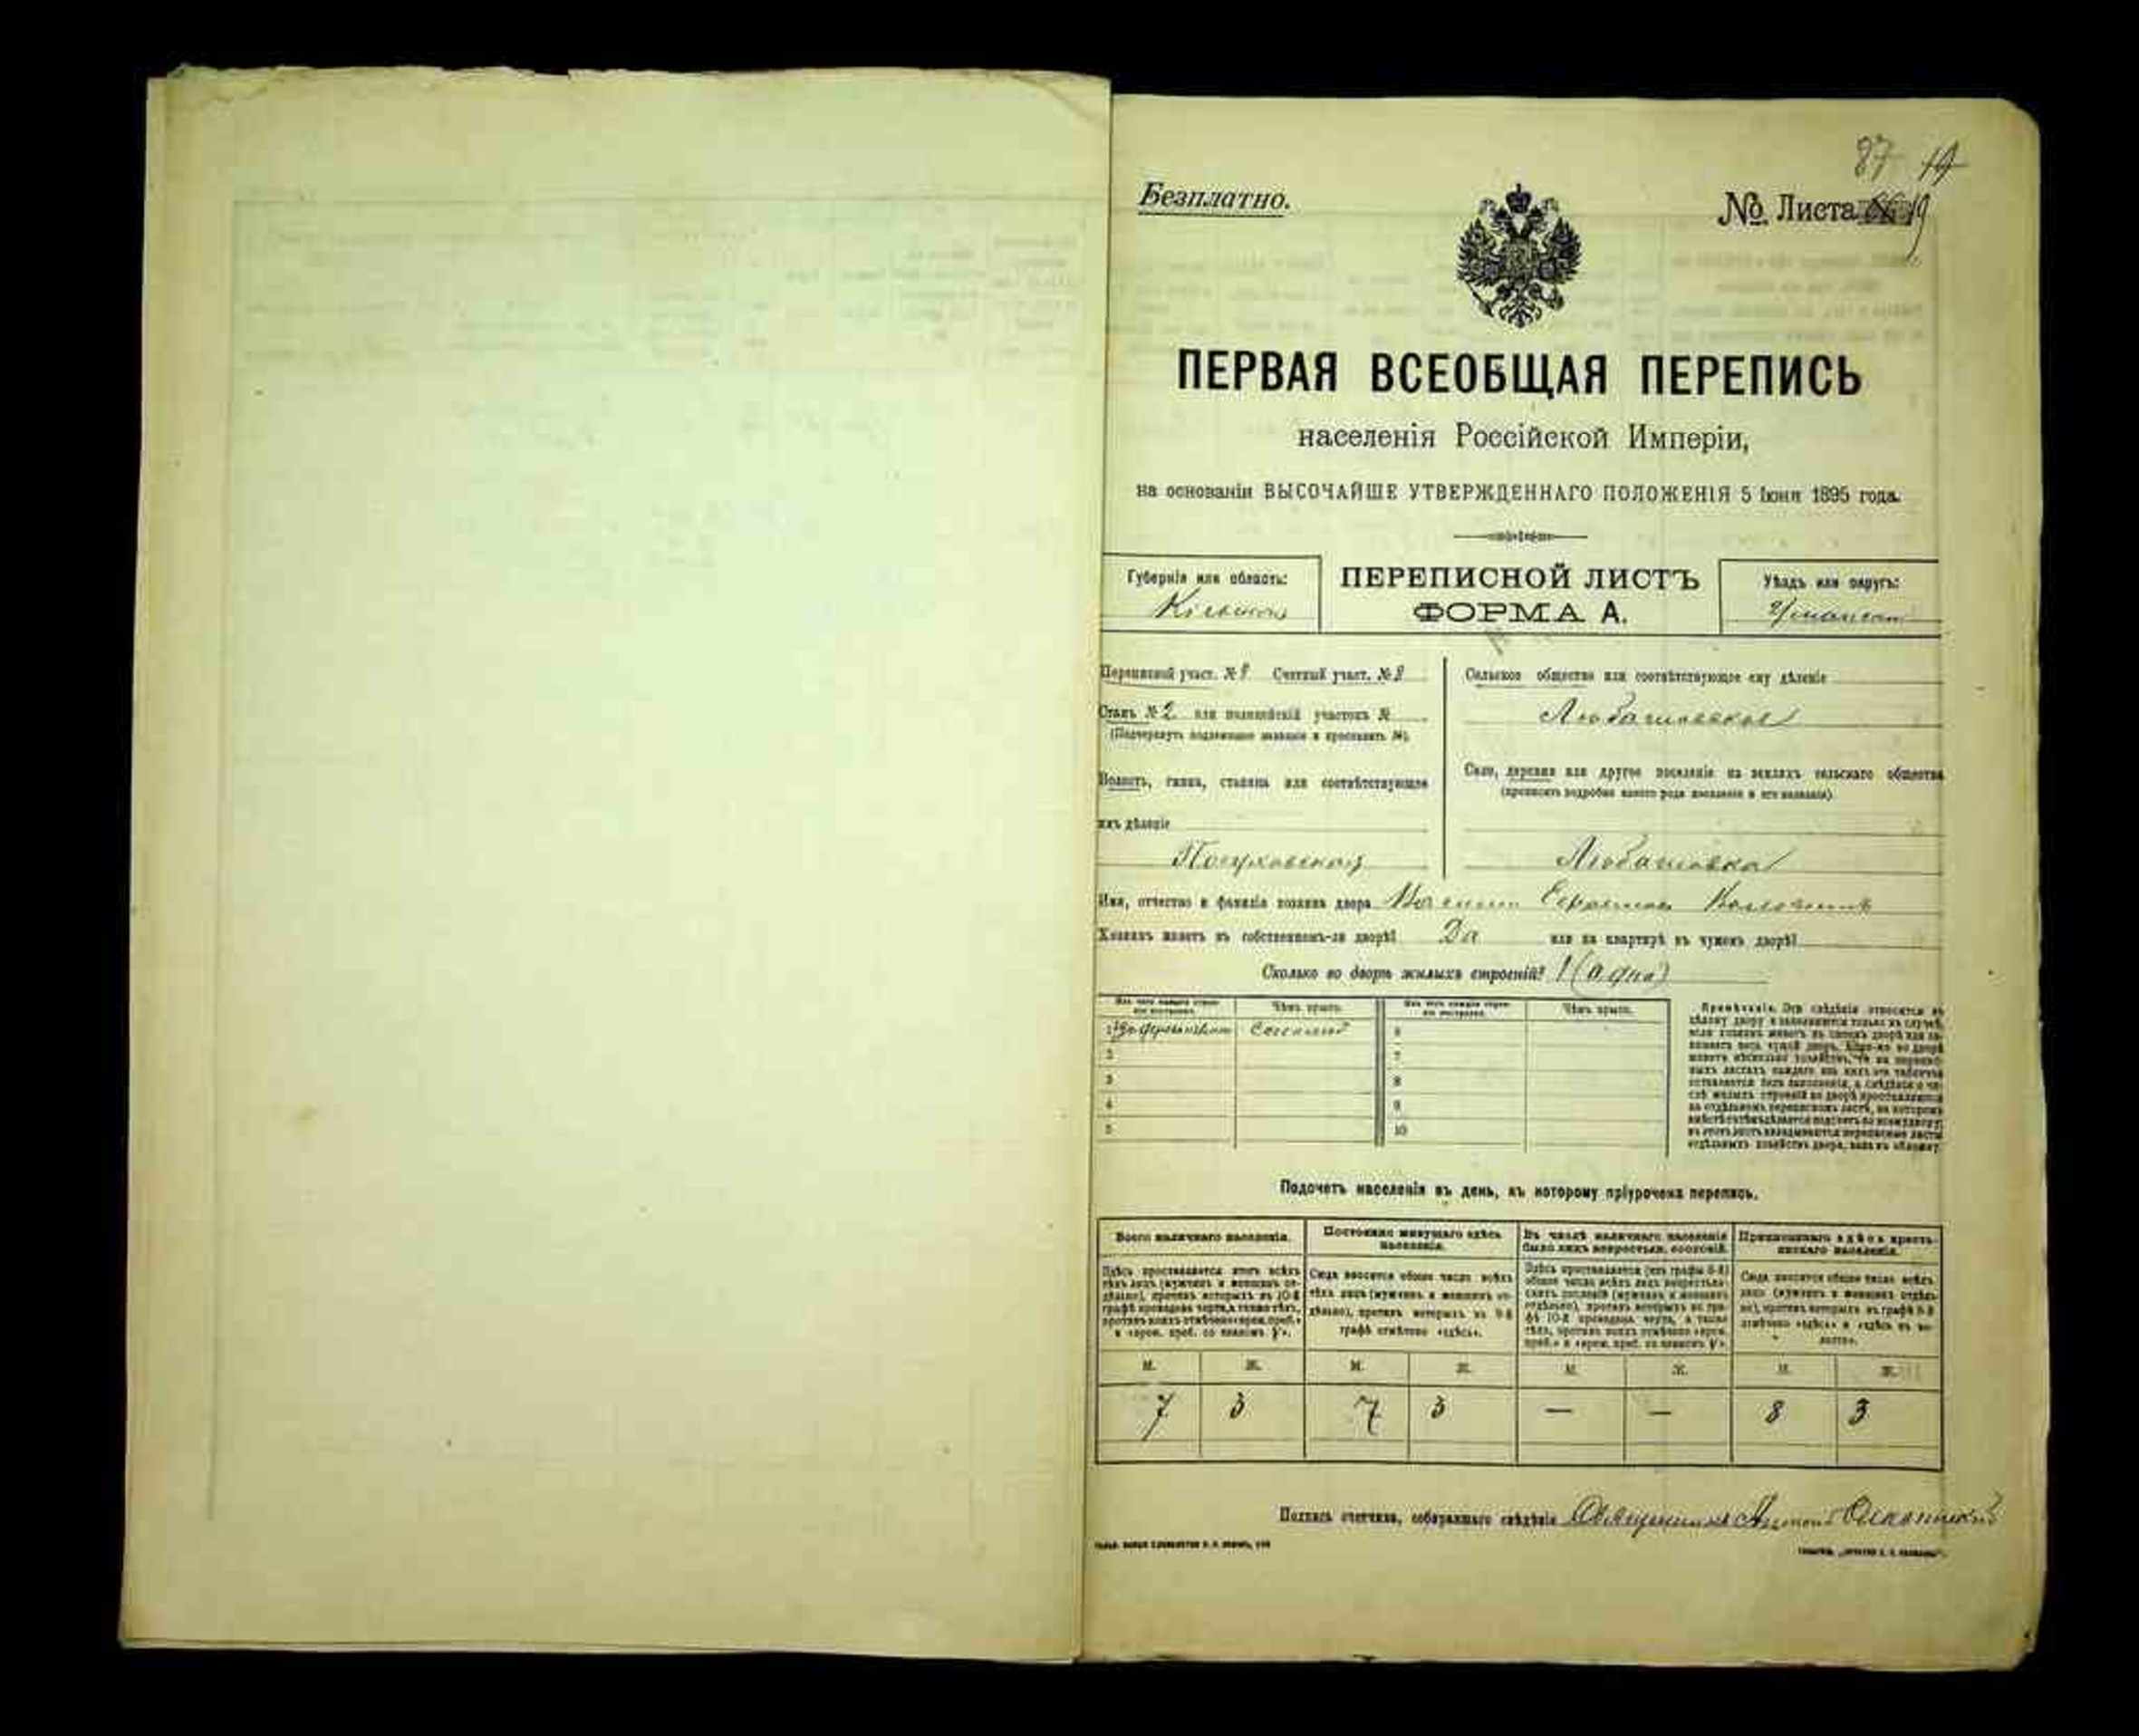 87 19
Безплатно.
№ Листа 19
ПЕРВАЯ ВСЕОБЩАЯ ПЕРЕПИСЬ
населенія Россійской Имперіи,
на основаніи ВЫСОЧАЙШЕ УТВЕРЖДЕННАГО ПОЛОЖЕНІЯ 5 Іюня 1895 года.
Губернія или область:
Кіевская
ПЕРЕПИСНОЙ ЛИСТЪ
ФОРМА А.
Уѣздъ или округъ:
Уманскій
Переписной участ. № 8 Счетный участ. № 2
Станъ № 2 или полицейскій участокъ №
(Подчеркнуть подлежащее названіе и проставить №).
Волость, гмина, станица или соотвѣтствующее
имъ дѣленіе
Посуховская
Сельское общество или соотвѣтствующее ему дѣленіе
Любашевское
Село, деревня или другое поселеніе на земляхъ сельскаго общества
(прописать подробно какого рода поселеніе и его названіе)
Любашевка
Имя, отчество и фамилія хозяина двора
Хозяинъ живетъ въ собственномъ-ли дворѣ? Да или на квартирѣ въ чужомъ дворѣ?
Сколько во дворѣ жилыхъ строеній? 1 (одно)
Изъ чего каждое строеніе построено. Чѣмъ крыто. Изъ чего каждое строеніе построено. Чѣмъ крыто.
1 Соломой 6
2 7
3 8
4 9
5 10
Примѣчаніе. Эти свѣдѣнія относятся къ
цѣлому двору и заполняются только въ случаѣ,
если хозяинъ живетъ въ своемъ дворѣ или за-
нимаетъ весь чужой дворъ. Если-же во дворѣ
живетъ нѣсколько хозяйствъ, то на перепис-
ныхъ листахъ каждаго изъ нихъ эта табличка
оставляется безъ заполненія, а свѣдѣнія о чи-
слѣ жилыхъ строеній во дворѣ проставляются
на отдѣльномъ переписномъ листѣ, на которомъ
вмѣстѣ съ тѣмъ дѣлается подсчетъ по всему двору;
въ этотъ листъ вкладываются переписные листы
отдѣльныхъ хозяйствъ двора, какъ въ обложку.
Подсчетъ населенія въ день, къ которому пріурочена перепись.
Всего наличнаго населенія.
Постоянно живущаго здѣсь населенія.
Въ числѣ наличнаго населенія было лицъ некрестьян. сословій.
Приписаннаго здѣсь крестьянскаго населенія.
Здѣсь проставляется итогъ всѣхъ
тѣхъ лицъ (мужчинъ и женщинъ от-
дѣльно), противъ которыхъ въ 10-й
графѣ проведена черта, а также тѣхъ,
противъ коихъ отмѣчено «врем. преб.»
и «врем. преб. со знакомъ V».
Сюда вносится общее число всѣхъ
тѣхъ лицъ (мужчинъ и женщинъ от-
дѣльно), противъ которыхъ въ 9-й
графѣ отмѣчено «здѣсь».
Здѣсь проставляется (изъ графы 8-й)
общее число всѣхъ лицъ некрестьян-
скихъ сословій (мужчинъ и женщинъ
отдѣльно), противъ которыхъ въ гра-
фѣ 10-й проведена черта, а также
тѣхъ, противъ коихъ отмѣчено «врем.
преб.» и «врем. преб. со знакомъ V».
Сюда вносится общее число всѣхъ
лицъ (мужчинъ и женщинъ отдѣль-
но), противъ которыхъ въ графѣ 8-й
отмѣчено «здѣсь» и «здѣсь въ во-
лости».
М. Ж. М. Ж. М. Ж. М. Ж.
7 3 7 3 — — 8 3
Подпись счетчика, собиравшаго свѣдѣнія